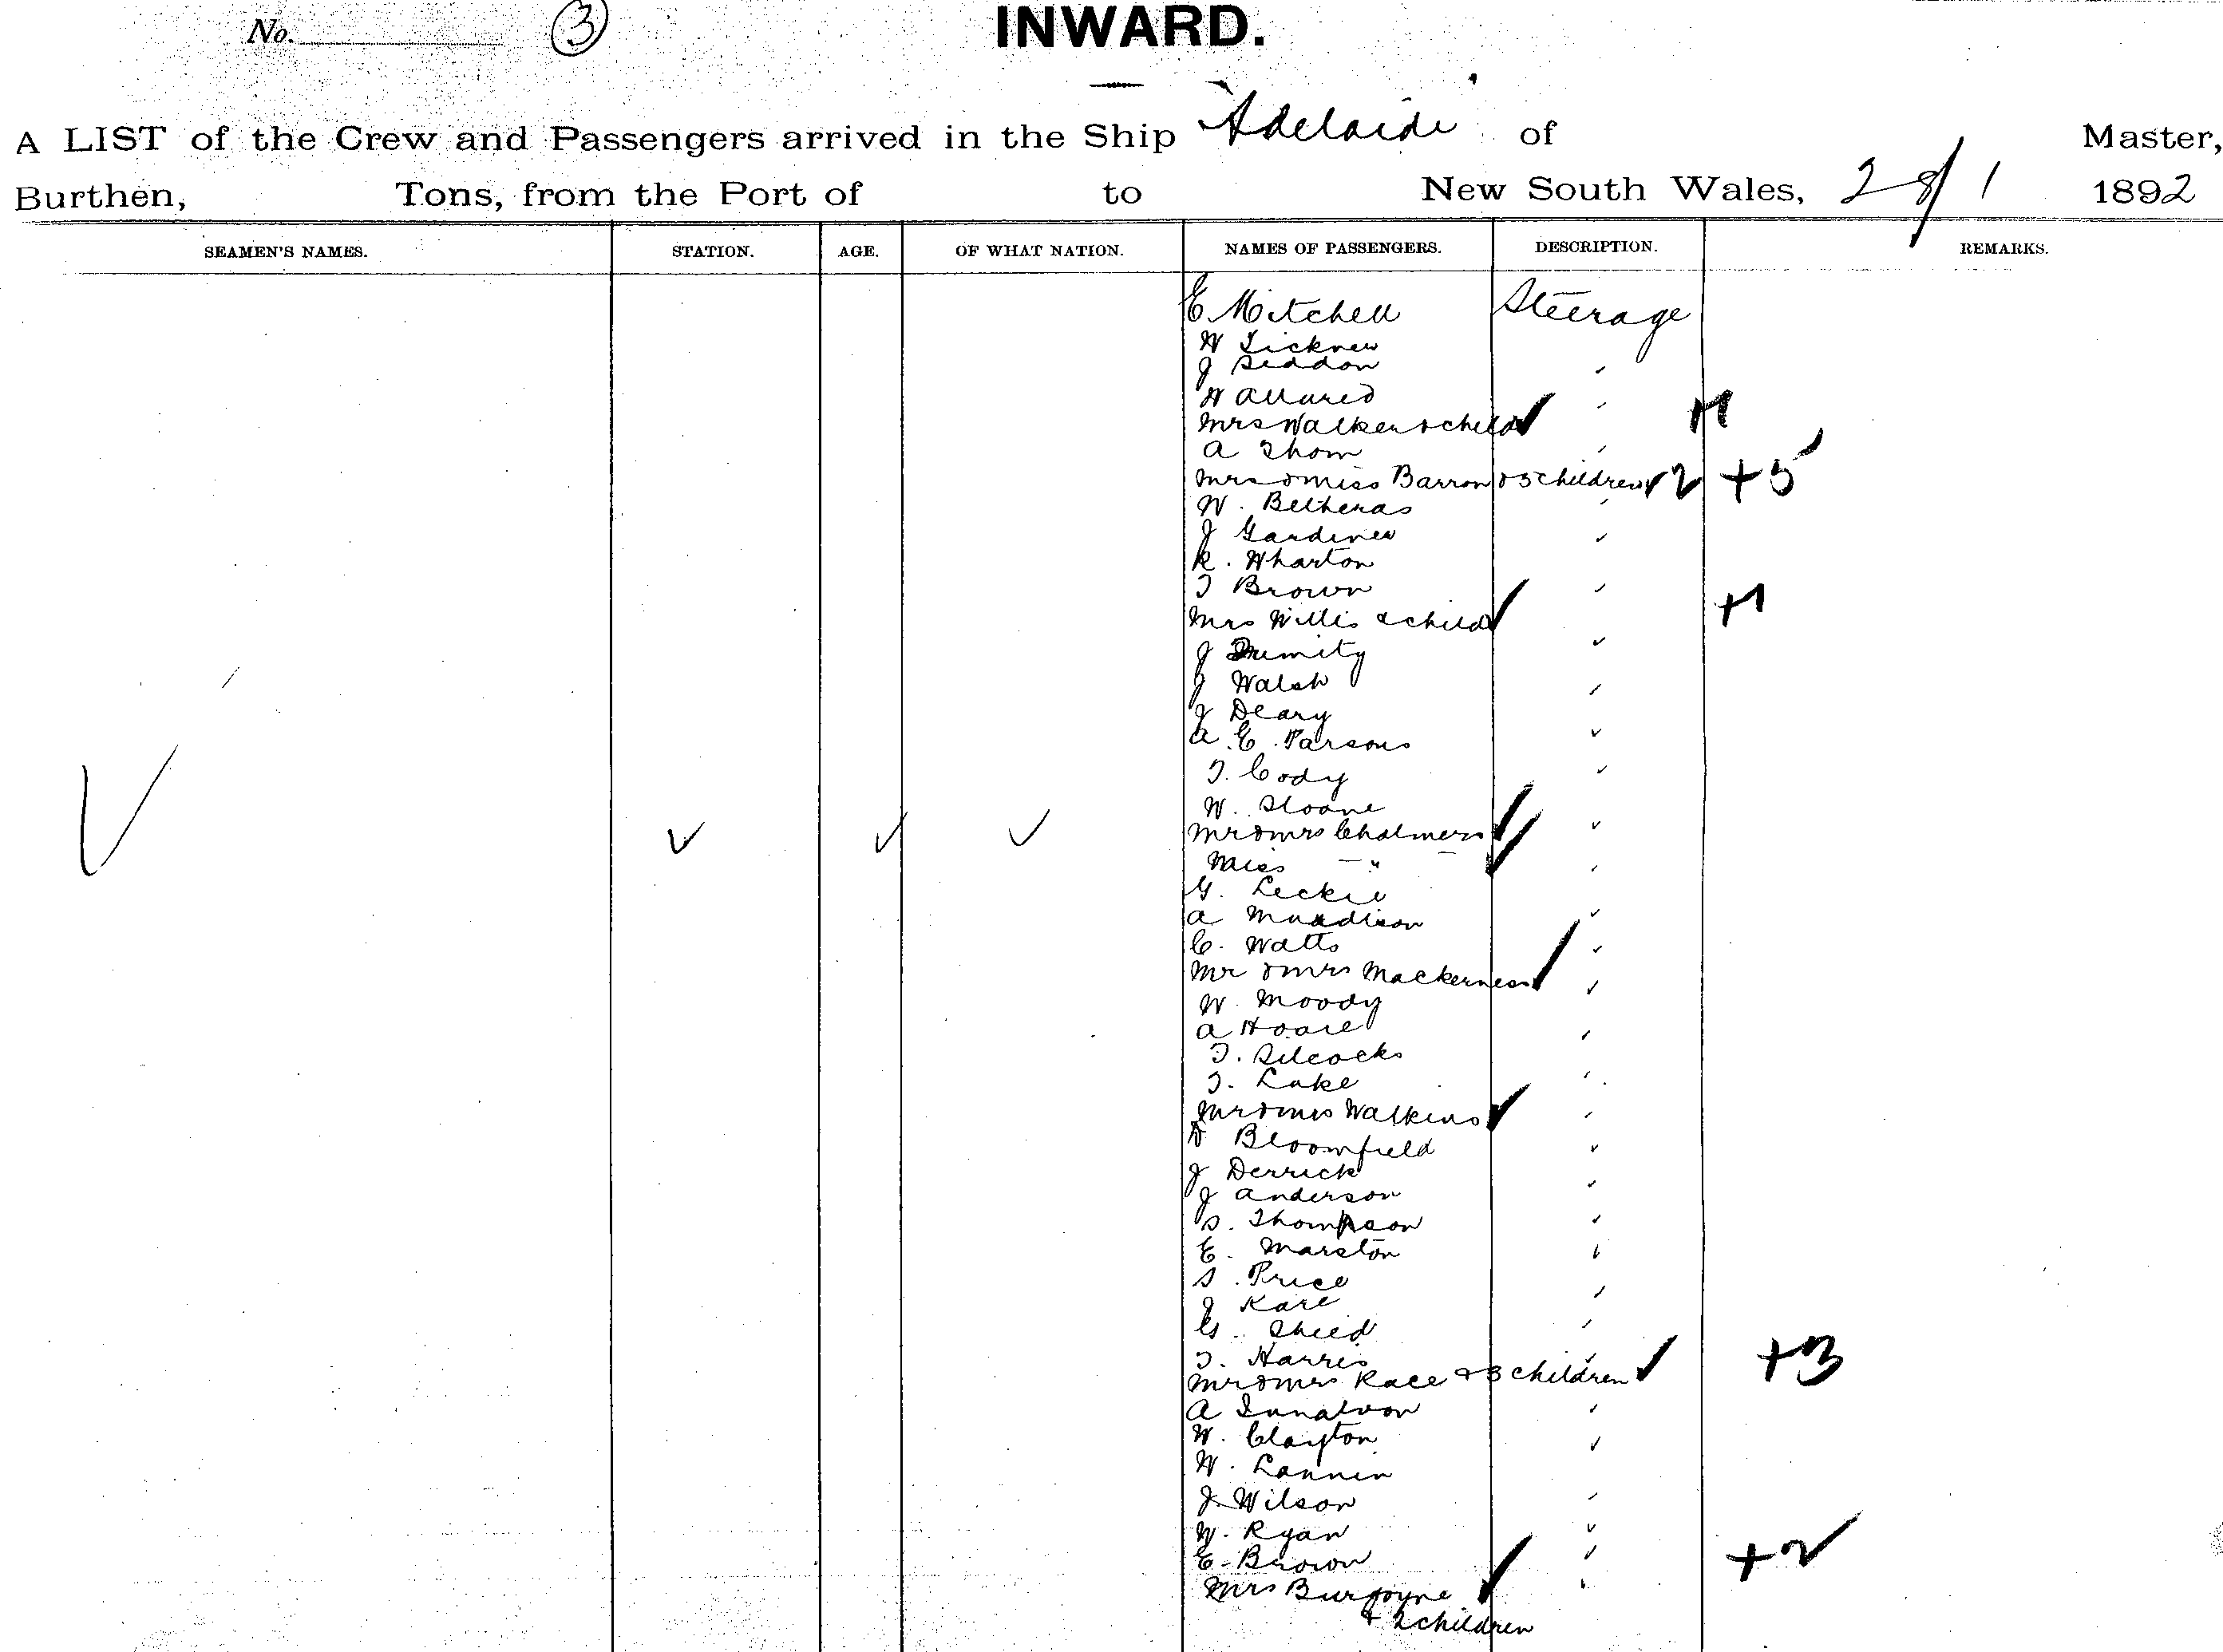 No. 3
INWARD.
A LIST of the Crew and Passengers arrived in the Ship Adelaide of Master,
Burthen, Tons, from the Port of to New South Wales, 28/1 1892
SEAMEN'S NAMES. STATION. AGE. OF WHAT NATION. NAMES OF PASSENGERS. DESCRIPTION. REMARKS.
E Mitchell Steerage
W
J Seddon
W Allured
Mrs Walker & child +1
A Thom
Mrs & Miss Barron & 5 children 2 +5
W. Betheras
J Gardiner
R. Wharton
T Brown
Mrs Willis & child +1
J
J Walsh
J Deary
A. E. Parsons
T. Cody
W. Sloane
Mr & Mrs Chalmers
Miss — "
G. Leckie
A
C. Watts
Mr & Mrs Mackerness
W. Moody
A Hoare
T. Silcocks
T. Lake
Mr & Mrs Watkins
Bloomfield
J Derrick
J Anderson
S. Thompson
E. Marston
S. Price
J Kare
G. Sheed
T. Harris
Mr & Mrs Race & 3 children +3
A
W. Clayton
W. Lannin
J Wilson
W. Ryan
E. Brown
Mrs Burgoyne +2
+ 2 children